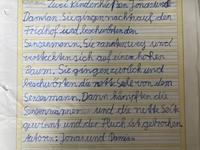 Zwei Kinder hießen Jonas und
Damian. Sie gingen nachts auf den
Friedhof und beschwörten den
Sensenmann. Sie rannten weg und
versteckten sich auf einem hohen
Baum. Sie gingen zurück und
beschwörten die nette Seite von dem
Sensemann. Dann kämpften die
Sensenmänner und die nette Seite
gewinnt und der Fluch ist gebrochen.
Autoren: Jonas und Damian